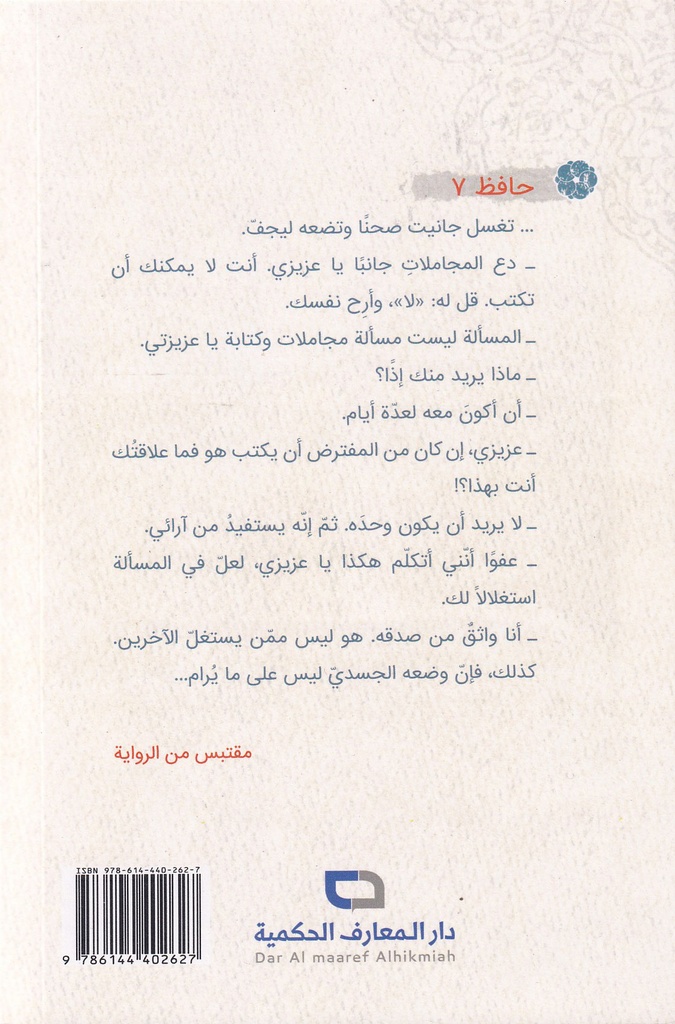 حافظ ٧
... تغسل جانيت صحنًا وتضعه ليجفّ.
ـ دع المجاملاتِ جانبًا يا عزيزي. أنت لا يمكنك أن
تكتب. قل له: «لا»، وأرِح نفسك.
ـ المسألة ليست مسألة مجاملات وكتابة يا عزيزتي.
ـ ماذا يريد منك إذًا؟
ـ أن أكونَ معه لعدّة أيام.
ـ عزيزي، إن كان من المفترض أن يكتب هو فما علاقتُك
أنت بهذا؟!
ـ لا يريد أن يكون وحدَه. ثمّ إنّه يستفيدُ من آرائي.
ـ عفوًا أنّني أتكلّم هكذا يا عزيزي، لعلّ في المسألة
استغلالاً لك.
ـ أنا واثقٌ من صدقه. هو ليس ممّن يستغلّ الآخرين.
كذلك، فإنّ وضعه الجسديّ ليس على ما يُرام...
مقتبس من الرواية
ISBN 978-614-440-262-7
9 786144 402627
دار المعارف الحكمية
Dar Al maaref Alhikmiah